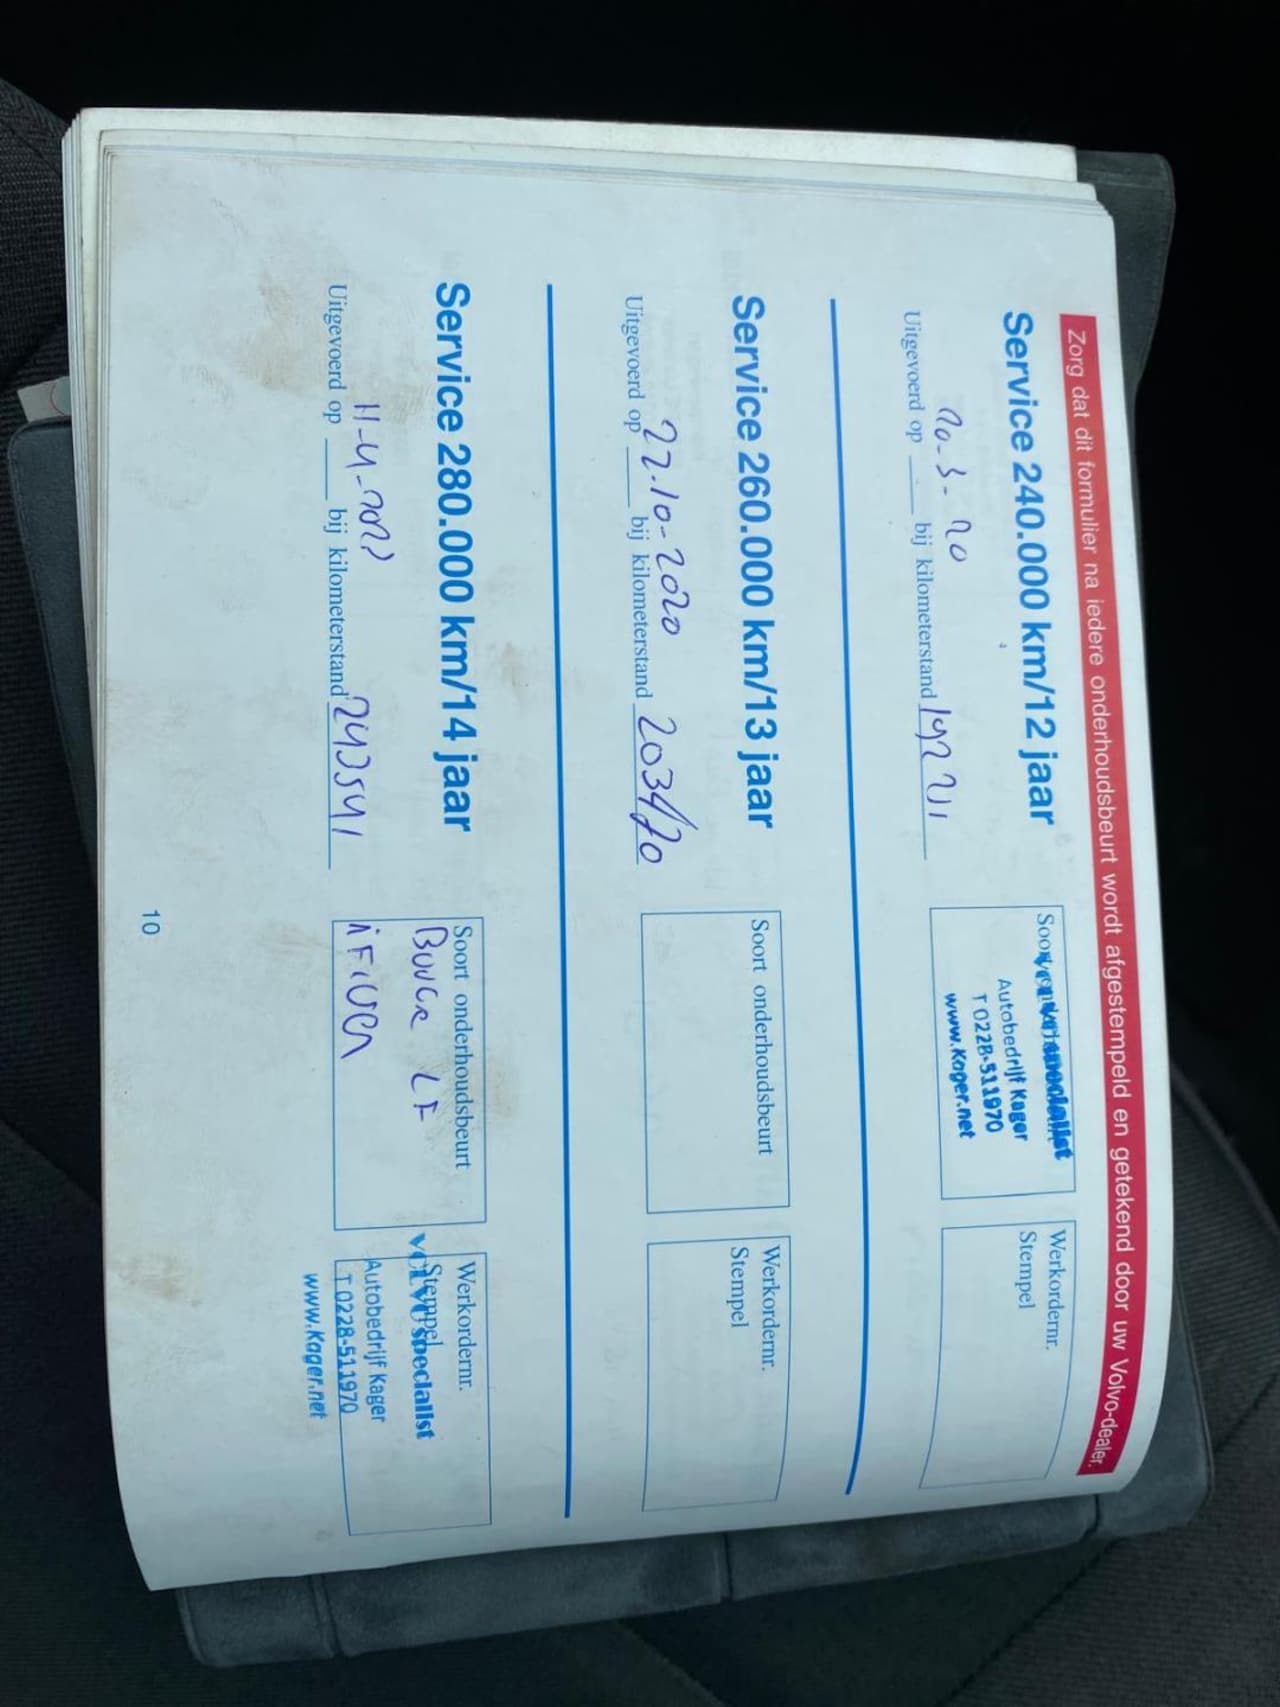 Zorg dat dit formulier na iedere onderhoudsbeurt wordt afgestempeld en getekend door uw Volvo-dealer.
Service 240.000 km/12 jaar
Uitgevoerd op bij kilometerstand
Soort
specialist
Autobedrijf Kager
T 0228-511970
www.Kager.net
Werkordernr.
Stempel
Service 260.000 km/13 jaar
22-10-2020
Uitgevoerd op bij kilometerstand 203470
Soort onderhoudsbeurt
Werkordernr.
Stempel
Service 280.000 km/14 jaar
11-4-2022
Uitgevoerd op bij kilometerstand
Soort onderhoudsbeurt
LF
Werkordernr.
Stempel
VOLVO specialist
Autobedrijf Kager
T 0228-511970
www.Kager.net
10